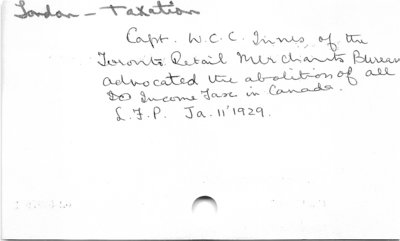 London - Taxation
Capt. W.C.C. Innes of the
Toronto Retail Merchants Bureau
advocated the abolition of all
Income Tax in Canada.
L.F.P. Ja. 11'1929.